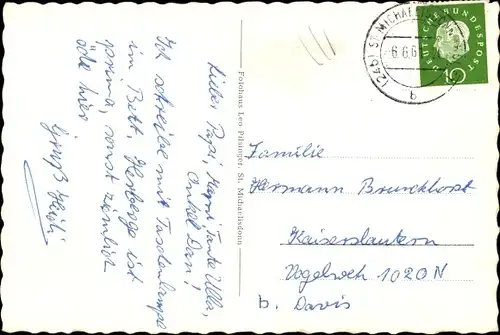 Liebe Papi, Mami, Tante Ulla,
Onkel Dan!
Ich schreibe mit Taschenlampe
im Bett. Herberge ist
prima, sonst ziemlich
öde hier
Gruß Heidi
Fotohaus Leo Pilninger, St. Michaelisdonn
(24b) ST. MICHAELISDONN
6.6.6
b
DEUTSCHE BUNDESPOST
10
Familie
Hermann Brunckhorst
Kaiserslautern
Vogelweh 1020 N
b. Davis